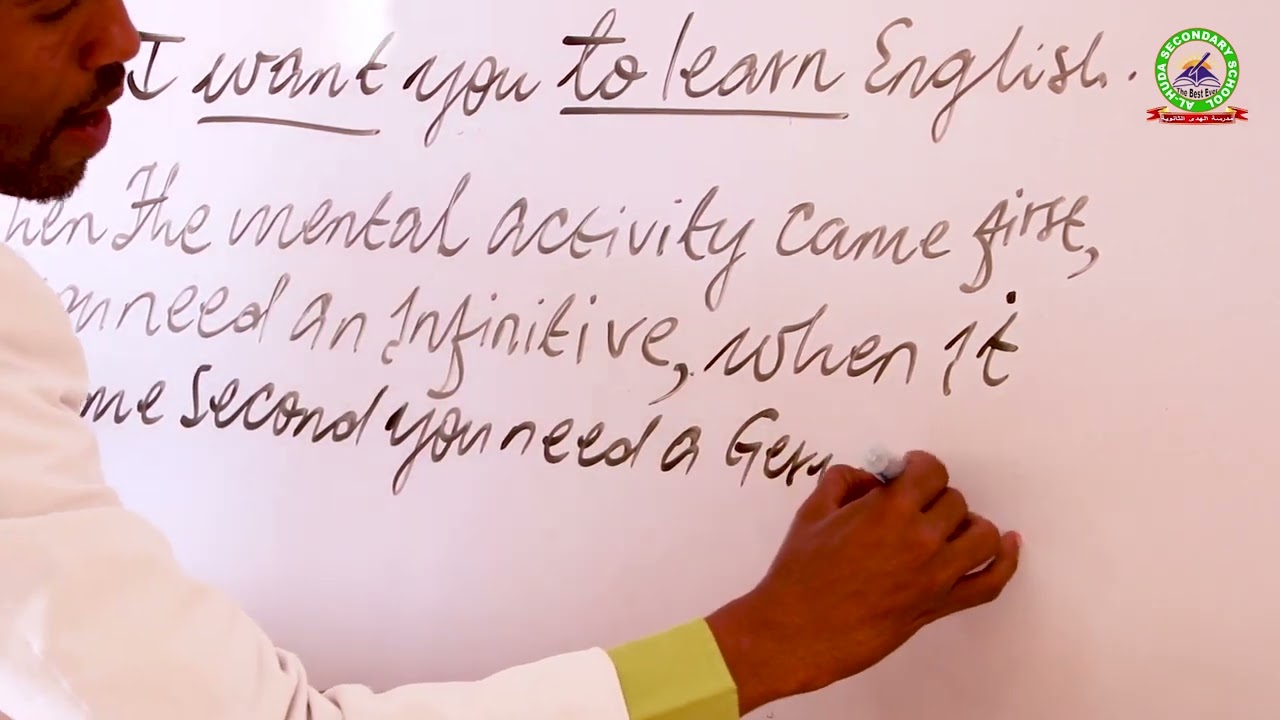 I want you to learn English.
hen The mental activity came first,
need an Infinitive, when it
me Second you need a Ger
AL-HUDA SECONDARY SCHOOL
The Best Ever
مدرسة الهدى الثانوية